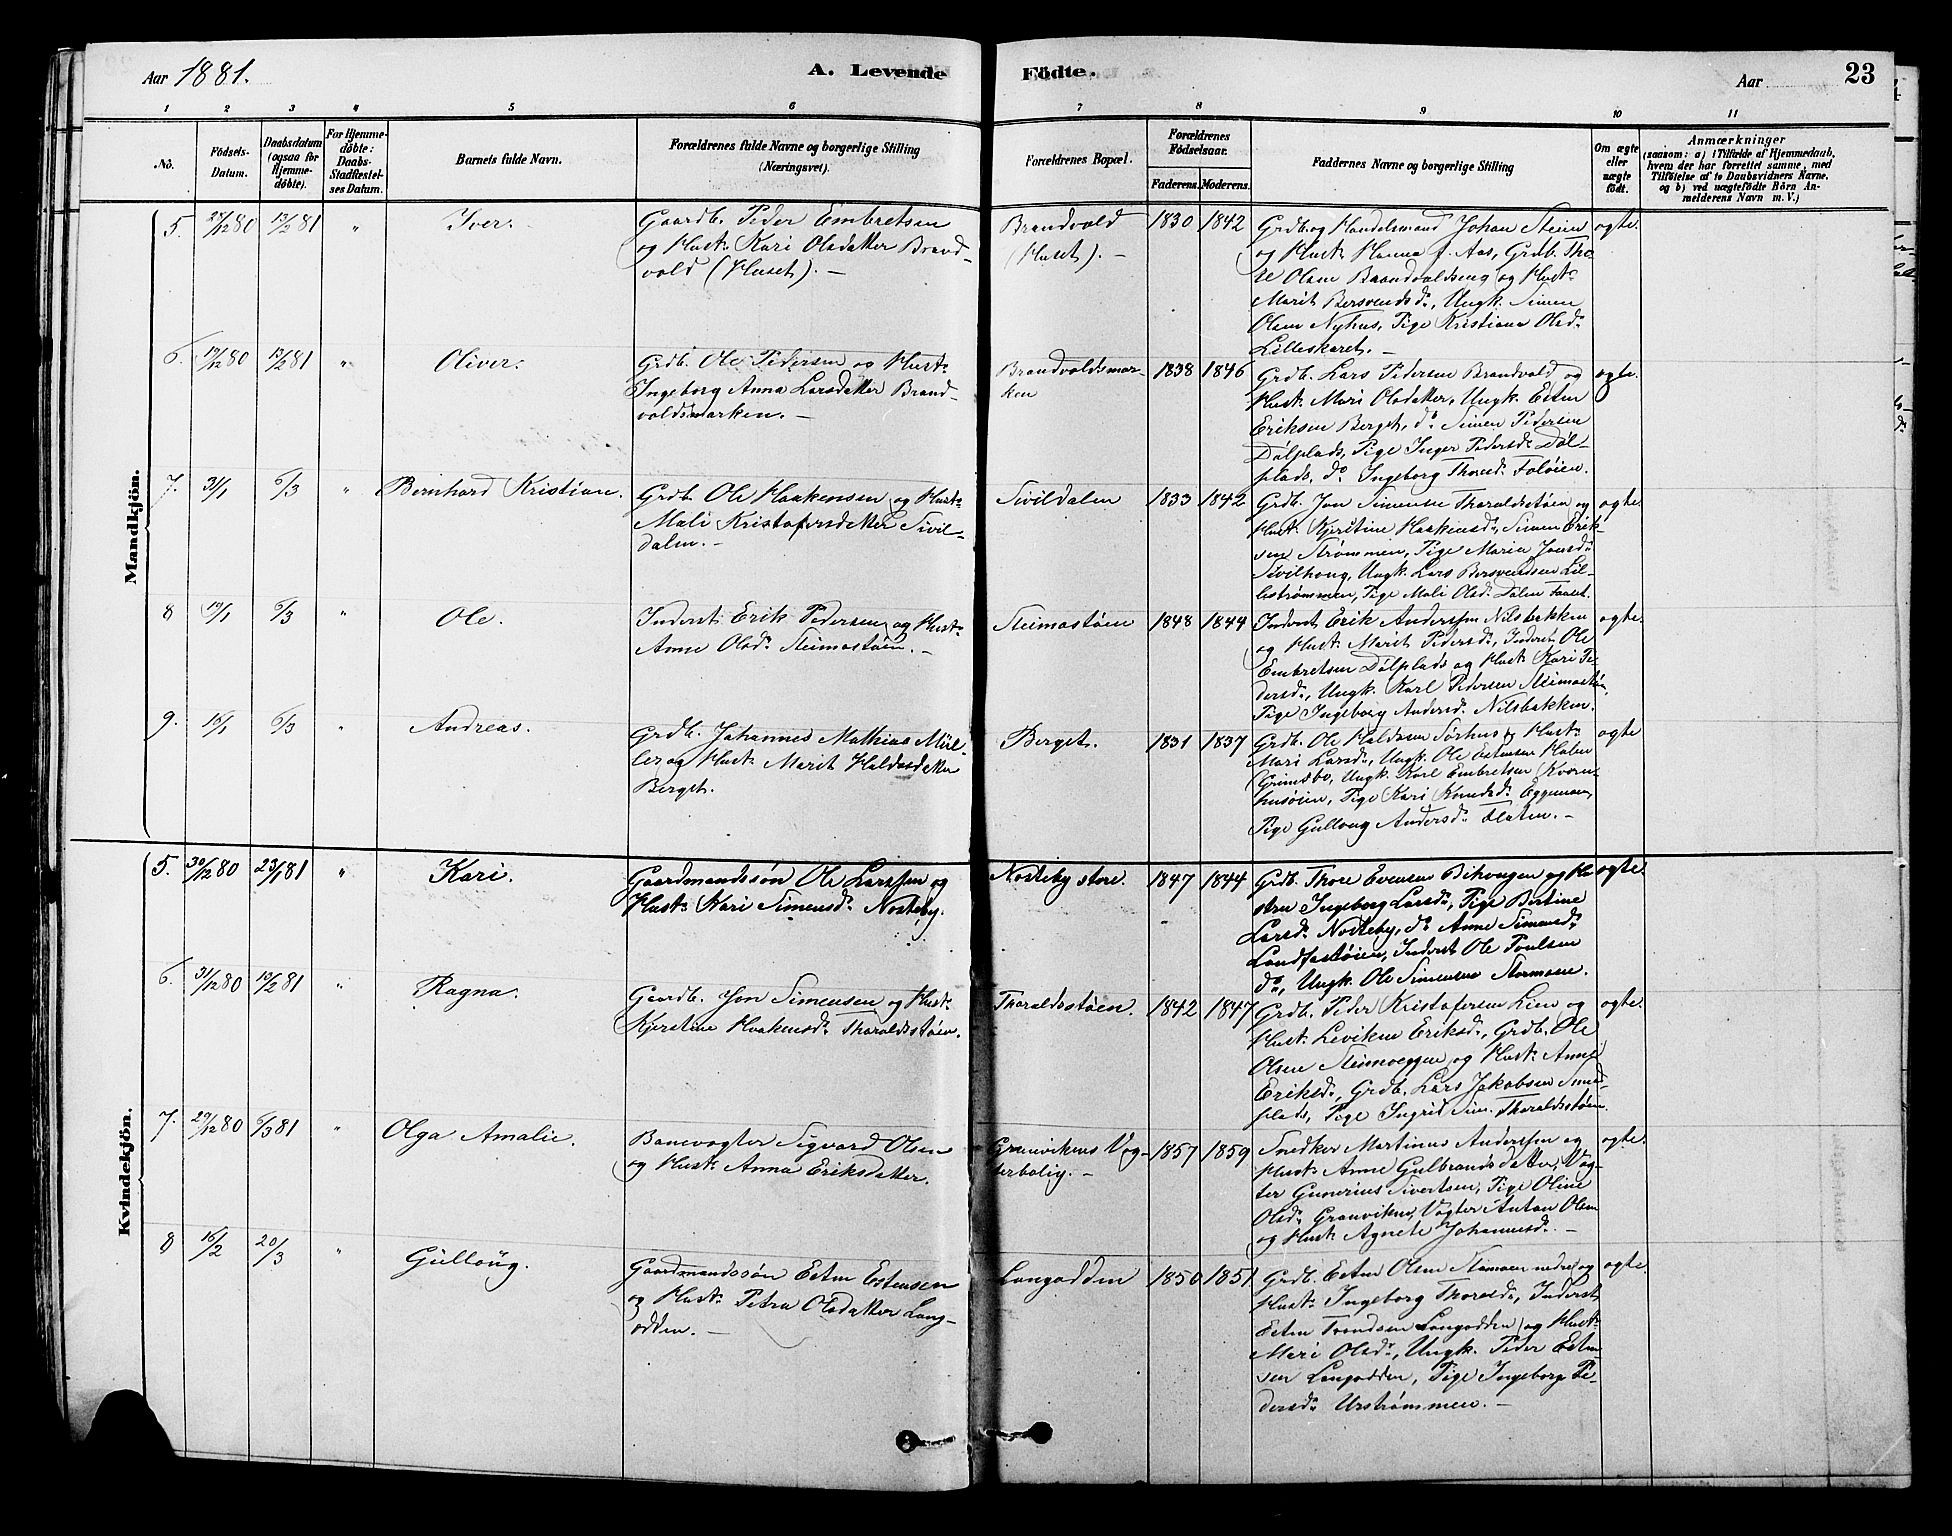 Aar 1881. A. Levende Födte. Aar 23
1 2 3 4 5 6 7 8 9 10 11
No. Födsels-Datum. Daabsdatum (ogsaa for Hjemmedöbte). For Hjemmedöbte: Daabs-Stadfæstelses Datum. Barnets fulde Navn. Forældrenes fulde Navne og borgerlige Stilling (Næringsvei). Forældrenes Bopæl. Forældrenes Födselsaar. Faderens. Moderens. Faddernes Navne og borgerlige Stilling Om ægte eller uægte födt. Anmærkninger (saasom: a) i Tilfælde af Hjemmedaab, hvem der har forrettet samme, med Tilföielse af to Daabsvidners Navne, og b) ved uægtefödte Börn Anmelderens Navn m. V.)
Mandkjön.
5. 28/12 80 13/2 81 " Iver. Gaardb. Peder Embretsen
og Hust: Kari Olsdatter Brand-
vold (Huset). —
Brandvold
(Huset). —
1830 1842
Grdb. og Handelsmand Johan Steien
og Hust: Hanna f. Aas, Grdb. Tho-
re Olsen Brandvoldseng og Hust:
Marit Bersvends d:, Ungk. Simen
Olsen Nyhus, Pige Kristiana Olsd:
Lilleskaret. —
ægte.
6. 19/12 80 13/2 81 " Oliver. Grdb. Ole Pedersen og Hust:
Ingeborg Anna Larsdatter Brand-
voldsmarken. —
Brandvoldsmar-
ken
1838 1846
Grdb. Lars Pedersen Brandvold og
Hust: Mari Olsdatter, Ungk. Esten
Eriksen Berget, d: Simen Pedersen
Dølplads, Pige Inger Pedersd: Døl-
plads, d: Ingeborg Thoresd: Foløien.
ægte.
7. 31/1 6/3 " Bernhard Kristian. Grdb. Ole Haakensen og Hust:
Mali Kristofersdatter Sivil-
dalen. —
Sivildalen
1833 1842
Grdb. Jon Simensen Tharaldsstøen og
Hust: Kjerstine Haakensd:, Simen Erik-
sen Strømmen, Pige Marie Jonsd:
Sivilhaug, Ungk. Lars Bersvendsen Lil-
lestrømmen, Pige Mali Olsd: Dalen Faaset.
ægte.
8 19/1 6/3 " Ole. Inderst: Erik Pedersen og Hust:
Anne Olsd: Steimostøen. —
Steimostøen
1848 1844
Inderst Erik Anderssen Nilsbakken
og Hust: Marit Pedersd:, Inderst Ole
Embretsen Dølplads og Hust: Kari Pe-
dersd:, Ungk. Karl Pedersen Steimostøen,
Pige Ingeborg Andersd: Nilsbakken.
ægte.
9. 16/1 6/3 " Andreas. Grdb. Johannes Mathias Mül-
ler og Hust: Marit Haldosdatter
Berget.
Berget.
1831 1837
Grdb. Ole Haldosen Sørhus og Hust:
Mari Larsd:, Ungk. Ole Estensen Halen
Grimsbo, Ungk. Karl Embretsen Kværn-
husøien, Pige Kari Knudsd: Eggemoen,
Pige Gulloug Andersd: Flaten. —
ægte
Kvindekjön.
5. 30/12 80 23/1 81 " Kari. Gaardmandssøn Ole Larssen og
Hust: Kari Simensd: Nosteby.
Nosteby store.
1847 1844
Grdb. Thore Evensen Bihaugen og Hu-
stru Ingeborg Larsd:, Pige Bertine
Larsd: Nosteby, d: Anne Simensd:
Landfastøien, Inderst Ole Poulsen
d:, Ungk. Ole Simensen Stormoen.
ægte.
6. 31/12 80 10/2 81 " Ragna. Gaardb. Jon Simensen og Hust:
Kjerstine Haakensd: Tharaldsstøen.
Tharaldsstøen.
1842 1847
Grdb. Peder Kristofersen Lien og
Hust: Leviken Eriksd:, Grdb. Ole
Olsen Steimoeggen og Hust: Anne
Eriksd:, Grdb. Lars Jakobsen Smed-
plads, Pige Ingrid Sim. Tharaldsstøen.
ægte.
7. 29/12 80 6/3 81 " Olga Amalie. Banevogter Sigvard Olsen
og Hust: Anna Eriksdatter.
Granvikens Vog-
terbolig. —
1857 1859
Snedker Martinus Anderssen og
Hust: Anne Gulbrandsdatter, Vog-
ter Gunerius Sivertsen, Pige Oline
Olsd: Granviken, Vogter Anton Olsen
og Hust: Agnete Johannesd: —
ægte.
8 16/2 20/3 " Gulloug. Gaardmandssøn Esten Estensen
og Hust: Petra Olsdatter Lang-
odden. —
Langodden
1850 1851
Grdb. Esten Olsen Stamoen nedre og
Hust: Ingeborg Thoresd:, Inderst
Esten Trondsen Langodden og Hust:
Mari Olsd:, Ungk. Peder Esten-
sen Langodden, Pige Ingeborg Pe-
dersd: Urstrømmen. —
ægte.